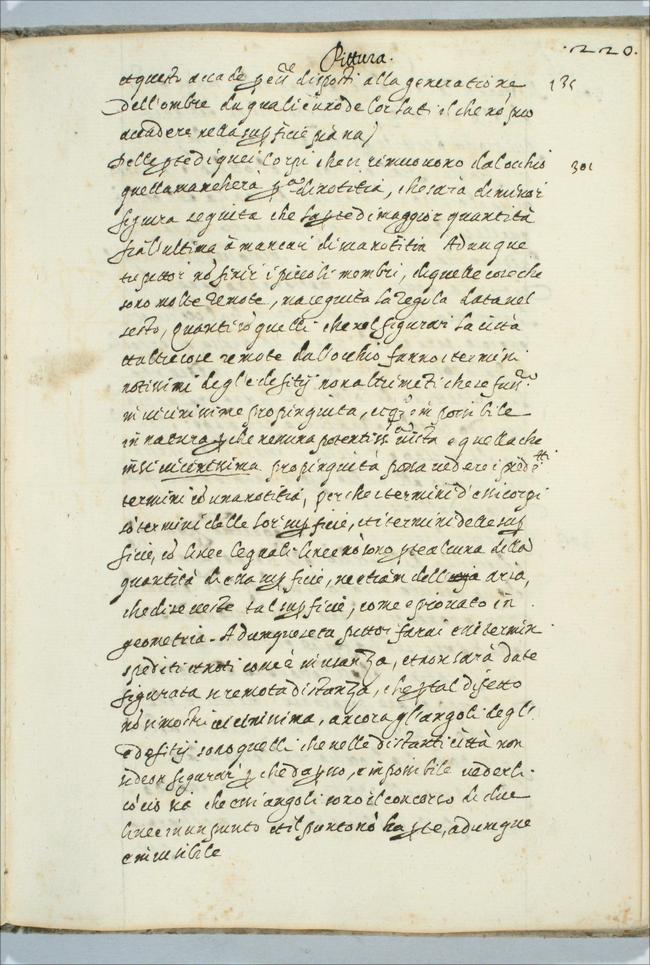 Pittura.
.220.
et questo accade p eẽ disposti alla generatione
135
dell'ombre da quali uno de lor lati il che nõ può
accadere nella supficie piana/
Delle pte di quei corpi che si rimuovono dal ochio
301
quella mancherà pª di notitia, che sarà di minor
figura seguita che la pte di maggior quantità
fia l'ultima à mancar di sua notitia Adunque
tu pittor nõ finir i piccoli membri, di quelle cose che
sono molto remote, ma seguita la regola data nel
sesto, Quanti sõ quelli che nel figurar la città
et altre cose remote dal ochio fanno i termini
notissimi degl'edifitij non altrimẽti che se fuss.º
in vicinissime propinquita, et qº è impossibile
in natura p che nessuna potentiss. vista è quella che
in si vicinissima propinquità possa vedere i predetti
termini cõ una notitia, perche i termini d'essi corpi
sõ termini delle lor supficie, et i termini delle sup
ficie, sõ linee le quali linee nõ sono pte alcuna della
quantità di essa supficie, ne etiam dell' aria,
che di se veste tal supficie, come è provato in
geometria. Adunque se tu pittor farai essi termin
spediti et noti come è in usanza, et non sarà da te
figurata si remota distanza, che p tal difetto
nõ si mostri vicinissima, ancora gl'angoli degl'
edifitij sono quelli che nelle distanti città non
si deon figurar p che da psso, è impossibile vederli.
cõ cio siá che essi angoli sono il concorso di due
linee in un punto et il punto nõ ha pte, adunque
è invisibile